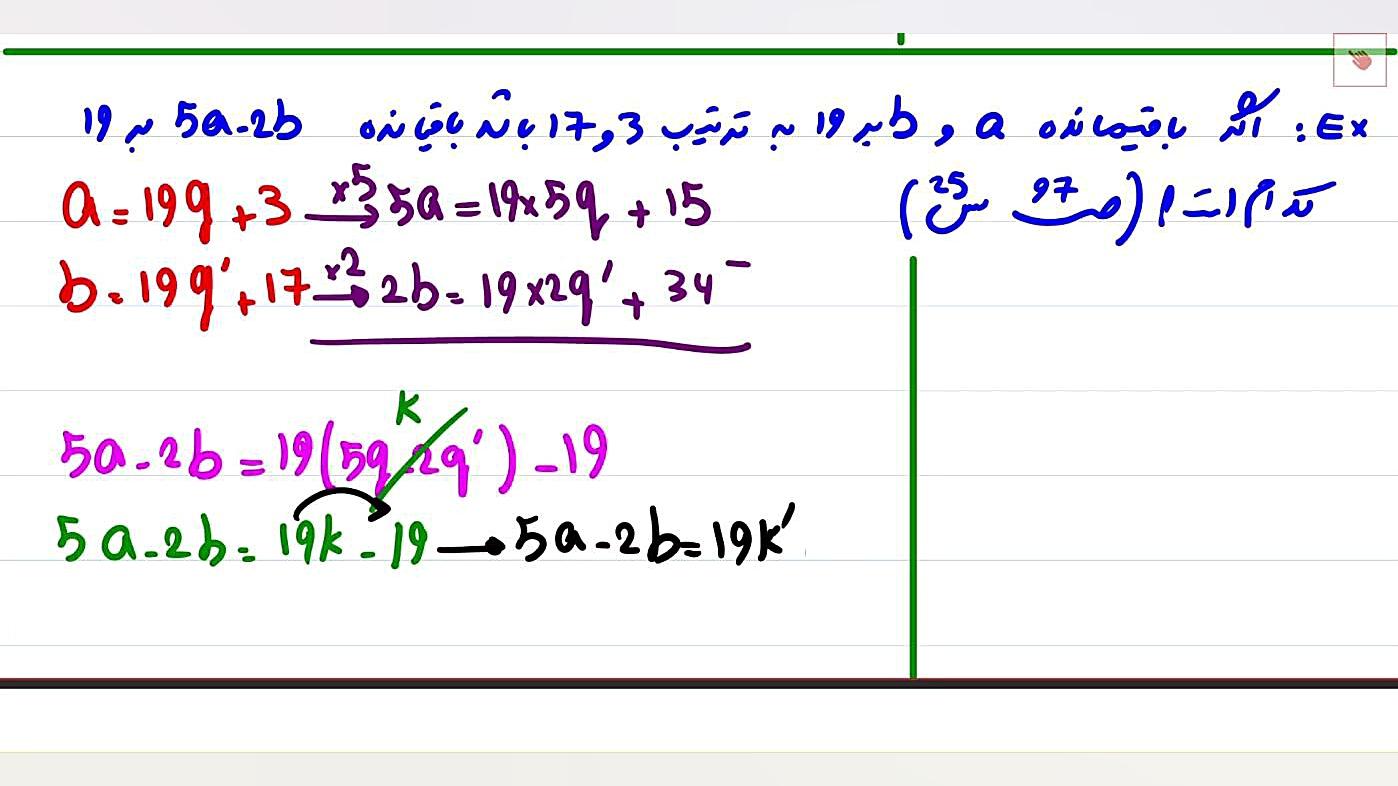 Ex: اگر باقیمانده a و b بر 19 به ترتیب 3 و 17 باشد باقیمانده 5a-2b بر 19
کدام است؟ (صفحه 97 س 25)
a = 19q + 3 ×5→ 5a = 19×5q + 15
b = 19q' + 17 ×2→ 2b = 19×2q' + 34 -
k
5a-2b = 19(5q-2q') - 19
5a-2b = 19k - 19 → 5a-2b = 19k'